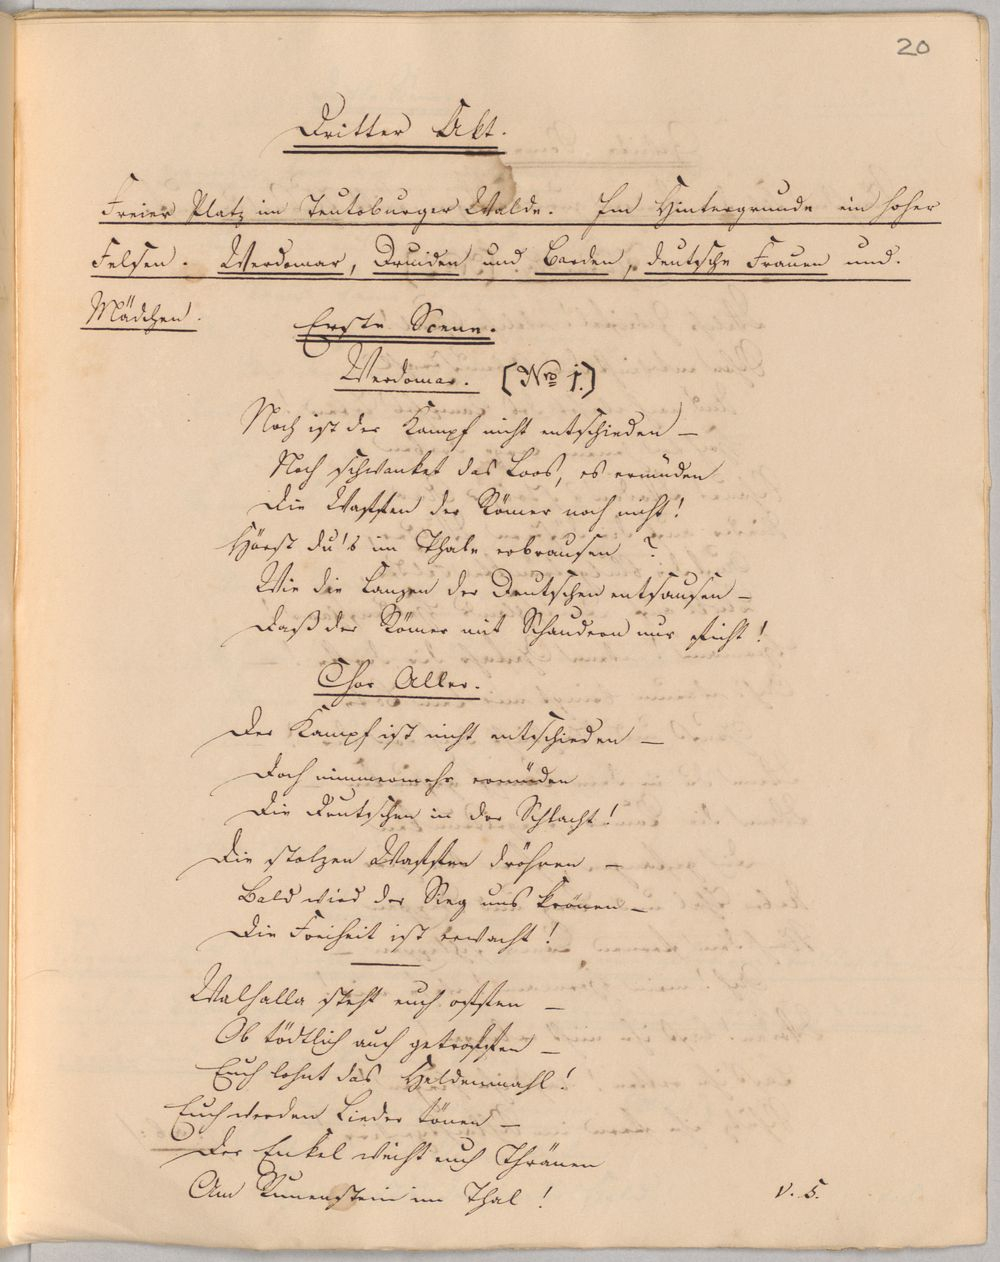 20
Dritter Akt.
Freier Platz im Teutoburger Walde. Im Hintergrunde ein hoher
Felsen. Werdomar, Druiden und Barden, deutsche Frauen und.
Mädchen.
Erste Scene.
Werdomar. (Nro 1.)
Noch ist der Kampf nicht entschieden –
Noch schwanket das Loos, es ermüden
Die Waffen der Römer noch nicht!
Hörst du's im Thale erbrausen?
Wie die Lanzen der Deutschen entsausen –
Daß der Römer mit Schaudern nur ficht!
Chor Aller.
Der Kampf ist nicht entschieden –
Doch nimmermehr ermüden
Die Deutschen in der Schlacht!
Die stolzen Waffen dröhnen –
Bald wird der Sieg uns krönen –
Die Freiheit ist erwacht!
Walhalla steht euch offen –
Ob tödtlich auch getroffen –
Euch lohnt das Heldenmahl!
Euch werden Lieder tönen –
Der Enkel weiht euch Thränen
Am Runenstein im Thal!
V. S.